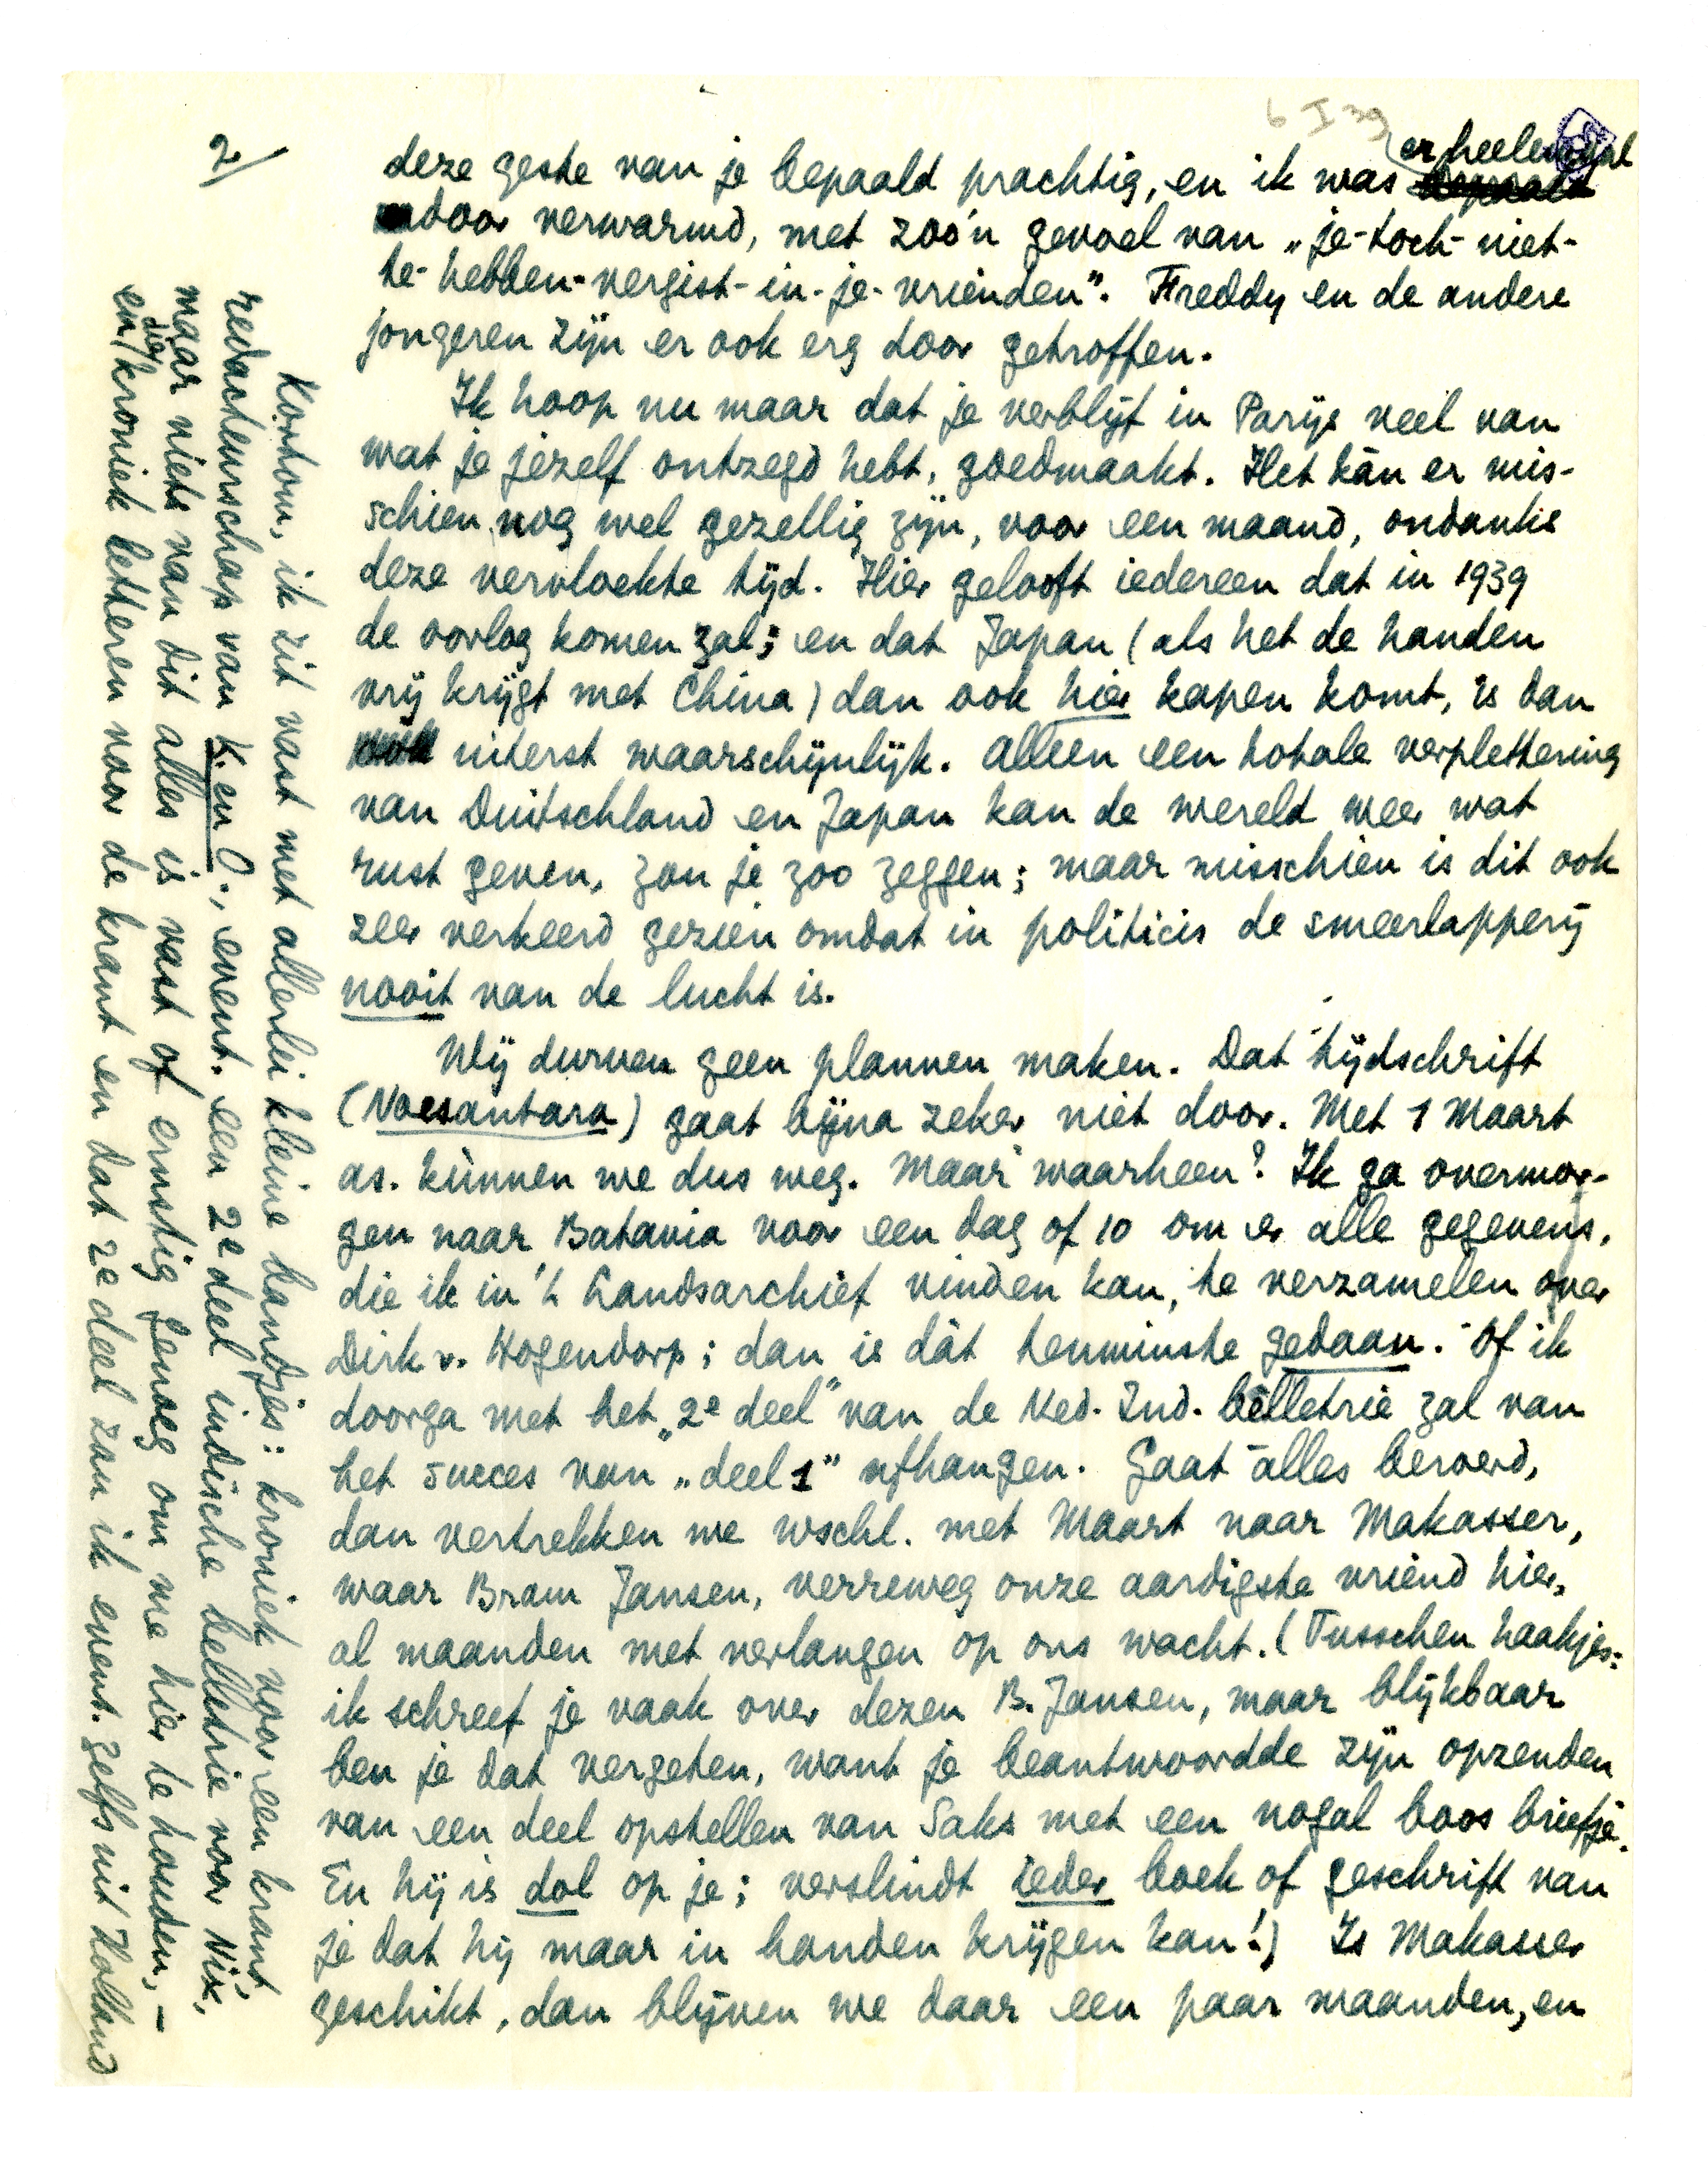 6 I 39
2/
deze geste van je bepaald prachtig, en ik was er heelemaal
door verwarmd, met zoo'n gevoel van „je-toch-niet-
te-hebben-vergist-in-je-vrienden”. Freddy en de andere
jongeren zijn er ook erg door getroffen.
Ik hoop nu maar dat je verblijf in Parijs veel van
wat je jezelf ontzegd hebt, goedmaakt. Het kàn er mis-
schien nog wel gezellig zijn, voor een maand, ondanks
deze vervloekte tijd. Hier gelooft iedereen dat in 1939
de oorlog komen zal; en dat Japan (als het de handen
vrij krijgt met China) dan ook hier kapen komt, is dan
uiterst waarschijnlijk. Alleen een totale verplettering
van Duitschland en Japan kan de wereld weer wat
rust geven, zou je zoo zeggen; maar misschien is dit ook
zeer verkeerd gezien omdat in politicis de smeerlapperij
nooit van de lucht is.
Wij durven geen plannen maken. Dat tijdschrift
(Noesantara) gaat bijna zeker niet door. Met 1 Maart
as. kùnnen we dus weg. Maar waarheen? Ik ga overmor-
gen naar Batavia voor een dag of 10 om er alle gegevens,
die ik in 't Landsarchief vinden kan, te verzamelen over
Dirk v. Hogendorp; dan is dàt tenminste gedaan. Of ik
doorga met het „2e deel” van de Ned. Ind. bèlletrie zal van
het succes van „deel 1” afhangen. Gaat alles beroerd,
dan vertrekken we wschl. met Maart naar Makasser,
waar Bram Jansen, verreweg onze aardigste vriend hier,
al maanden met verlangen op ons wacht. (Tusschen haakjes:
ik schreef je vaak over dezen B. Jansen, maar blijkbaar
ben je dat vergeten, want je beantwoordde zijn opzenden
van een deel opstellen van Saks met een nogal boos briefje.
En hij is dol op je; verslindt ieder boek of geschrift van
je dat hij maar in handen krijgen kan!) Is Makasser
geschikt, dan blijven we daar een paar maanden, en
Kortom, ik zit vast met allerlei kleine bandjes: kroniek voor een krant,
redacteurschap van K. en O., event. een 2e deel indische belletrie voor Nix,
maar niets van dit alles is vast of ernstig genoeg om me hier te houden, –
en die kroniek letteren voor de krant en dat 2e deel zou ik event. zelfs uit Holland